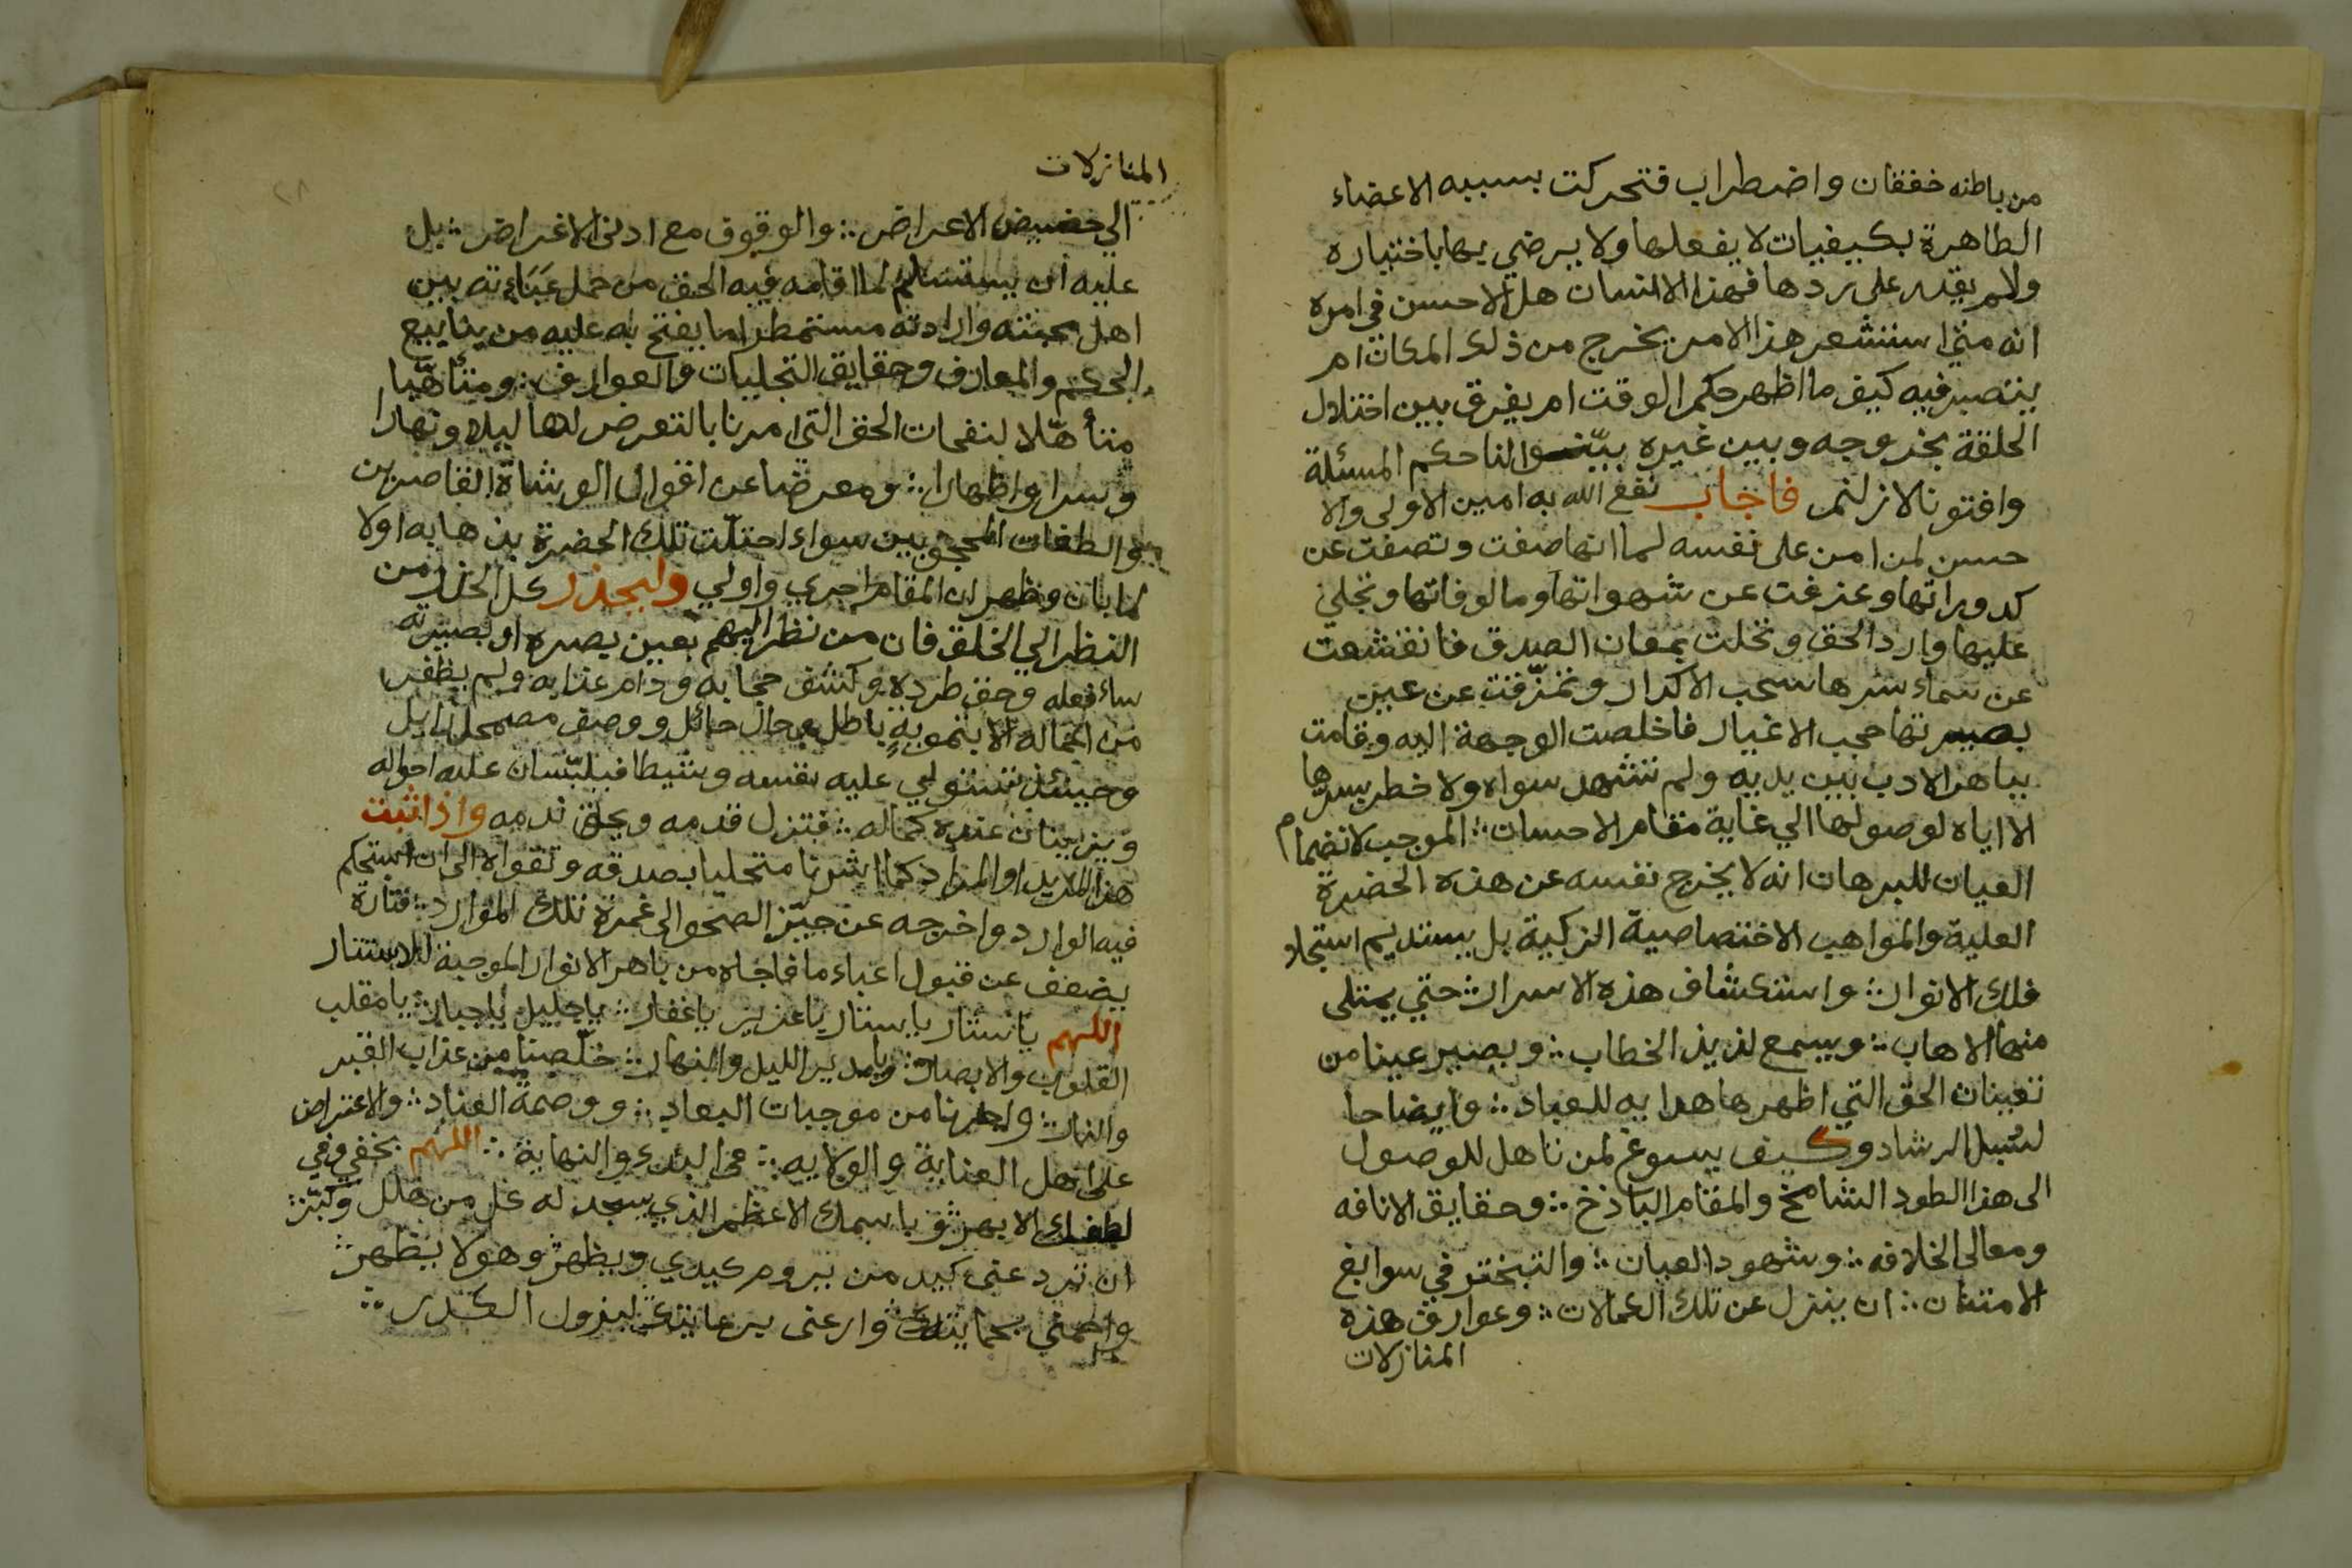 من باطنه خفقان واضطراب فتحركت بسببه الاعضاء
الظاهرة بكيفيات لا يفعلها ولا يرضي بها باختياره
ولم يقدر على ردها فهذا الانسان هل الاحسن في امره
انه متي استشعر هذا الامر يخرج من ذلك المكان ام
ينتصب فيه كيف ما اظهر حكم الوقت ام يفرق بين اختلال
الحلقة بخروجه وبين غيره بينوا لنا حكم المسئلة
وافتونا لا زلتم فاجاب نفع الله به امين الاولى والا
حسن لمن امن على نفسه لما انها صفت وتصفت عن
كدوراتها وعزفت عن شهواتها ومالوفاتها وتجلي
عليها وارد الحق وتحلت بمعان الصدق فانقشعت
عن سماء سرها سحب الاكدار وتمزقت عن عين
بصيرتها حجب الاغيار فاخلصت الوجهة اليه وقامت
بباهر الادب بين يديه ولم تشهد سواه ولا خطر بسرها
الا اياه لوصولها الي غاية مقام الاحسان الموجب لانضمام
العيان للبرهان انه لا يخرج نفسه عن هذه الحضرة
العلية والمواهب الاختصاصية الزكية بل يستديم استجلا
فلك الانوار واستكشاف هذه الاسرار حتي يمتلى
منها الاهاب ويسمع لذيذ الخطاب ويصير عينا من
تعينات الحق التي اظهرها هدا به للعباد وايضاحا
لسبل الرشاد وكيف يسوغ لمن تاهل للوصول
الى هذا الطود الشامخ والمقام الباذخ وحقايق الانافه
ومعالى الخلافه وشهود العيان والتبختر في سوابغ
الامتنان ان ينزل عن تلك الكمالات وعوارف هذه
المنازلات
المنازلات
الي حضيض الاعراض والوقوف مع ادنى الاغراض بل
عليه ان يستسلم لما اقامه فيه الحق من حمل عباءته بين
اهل محبته وارادته مستمطرا ما يفتح به عليه من ينابيع
الحكم والمعارف وحقايق التجليات والعوارف ومتأهبا
متأهلا لنفحات الحق التي امرنا بالتعرض لها ليلا ونهارا
وسرا واظهارا ومعرضا عن اقوال الوشاة القاصرين
والطغات المحجوبين سواء اختلت تلك الحضرة بذهابه اولا
لما بان وظهر ان المقام احري واولي وليحذر كل الحذر من
النظر الي الخلق فان من نظر اليهم بعين بصره او بصيرته
ساء فعله وحق طرده وكشف حجابه ودام عذابه ولم يظفر
من اعماله الا بتمويه باطل وحال حائل ووصف مضمحل زايل
وحينئذ تستولي عليه نفسه وشيطا فيلبسان عليه احواله
ويزينان عنده كماله فتزل قدمه ويحق ندمه واذا ثبت
هذا المريد او المراد كما اشرنا متحليا بصدقه وتقواه الى ان استحكم
فيه الوارد واخرجه عن حيز الصحو الى غمرة تلك الموارد فتارة
يضعف عن قبول اعباء ما فاجاه من باهر الانوار الموجبة للاستتار
اللهم يا ستار يا ستار يا عزيز يا غفار يا جليل يا جبار يا مقلب
القلوب والابصار ويا مدير الليل والنهار خلصنا من عذاب القبر
والنار واجرنا من موجبات البعاد ووصمة العناد والاعتراض
على اهل العناية والولايه في البدء والنهاية اللهم بخفي وفي
لطفك الابهر وباسمك الاعظم الذي سجد له كل من هلل وكبر
ان ترد عني كيد من يروم كيدي ويظهر وهو لا يظهر
واحمني بحمايتك وارعني برعايتك لنزول الكدر